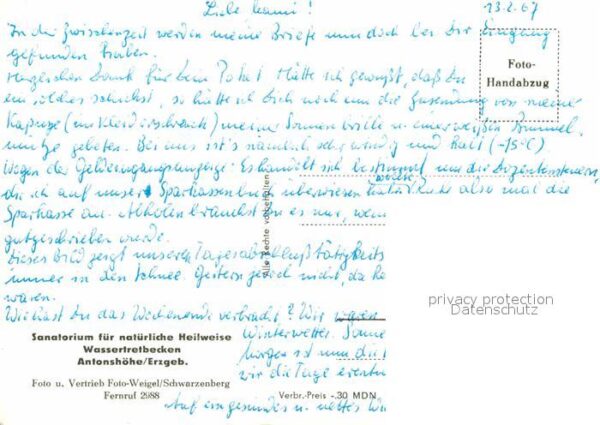 13.2.67
In der Zwischenzeit werden meine Briefe nun doch bei Dir Eingang
gefunden haben.
Herzlichen Dank für Dein Paket. Hätte ich gewußt, daß Du
ein solches schickst, so hätte ich Dich noch um die Zusendung von meiner
Kapuze (im Kleiderschrank) meiner Sonnenbrille u. einer weißen
mütze gebeten. Bei uns ist's nämlich sehr windig und kalt (-15°C)
Wegen der Geldeingangsanzeige: Es handelt sich bestimmt um die
die ich auf unser Sparkassenbuch überweisen also mal die
Sparkasse an. Abholen brauchst Du es nur, wenn
gutgeschrieben wurde.
Dieses Bild zeigt unsere Tagesabschluß tätigkeits
immer in den Schnee. Gestern jedoch nicht, da
waren.
Wie hast Du das Wochenende verbracht? Wir waren
Winterwetter. Sonne
morgen ist nun die
wir die Tage
Auf ein gesundes u. nettes
Foto-
Handabzug
Alle Rechte vorbehalten
privacy protection
Datenschutz
Sanatorium für natürliche Heilweise
Wassertretbecken
Antonshöhe/Erzgeb.
Foto u. Vertrieb Foto-Weigel/Schwarzenberg
Fernruf 2988
Verbr.-Preis -.30 MDN